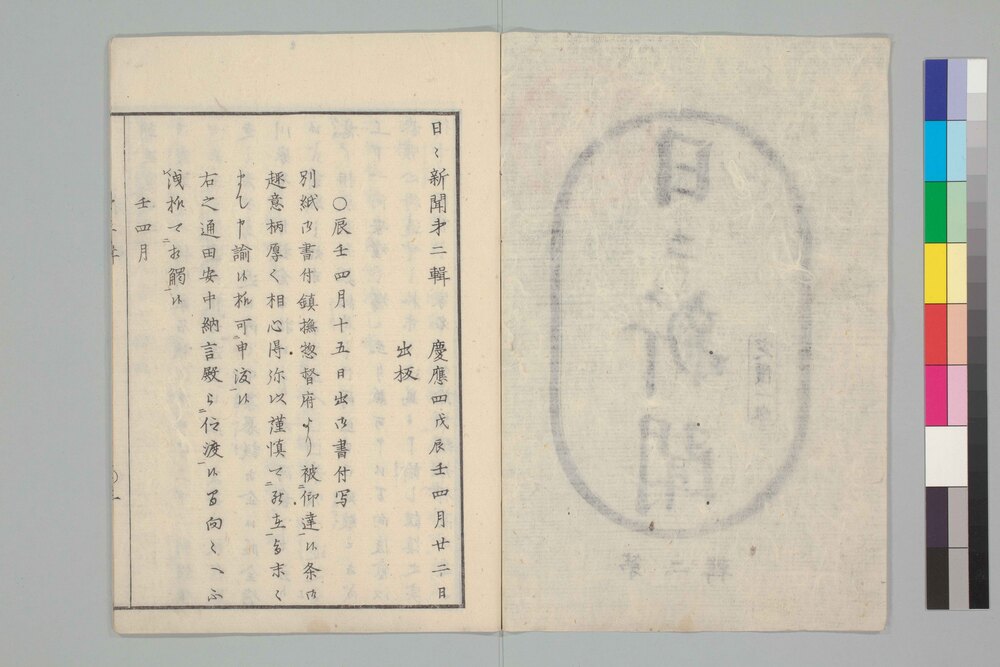 日々新聞第二輯 慶應四戊辰壬四月廿二日
出板
○辰壬四月十五日出御書付写
別紙御書付鎮撫惣督府より被仰達候条御
趣意柄厚く相心得弥以謹慎て罷在与末々
まても申諭候様可申渡候
右之通田安中納言殿ゟ仰渡候間向々へ不
洩様て相觸候
壬四月
日々新聞
第二輯